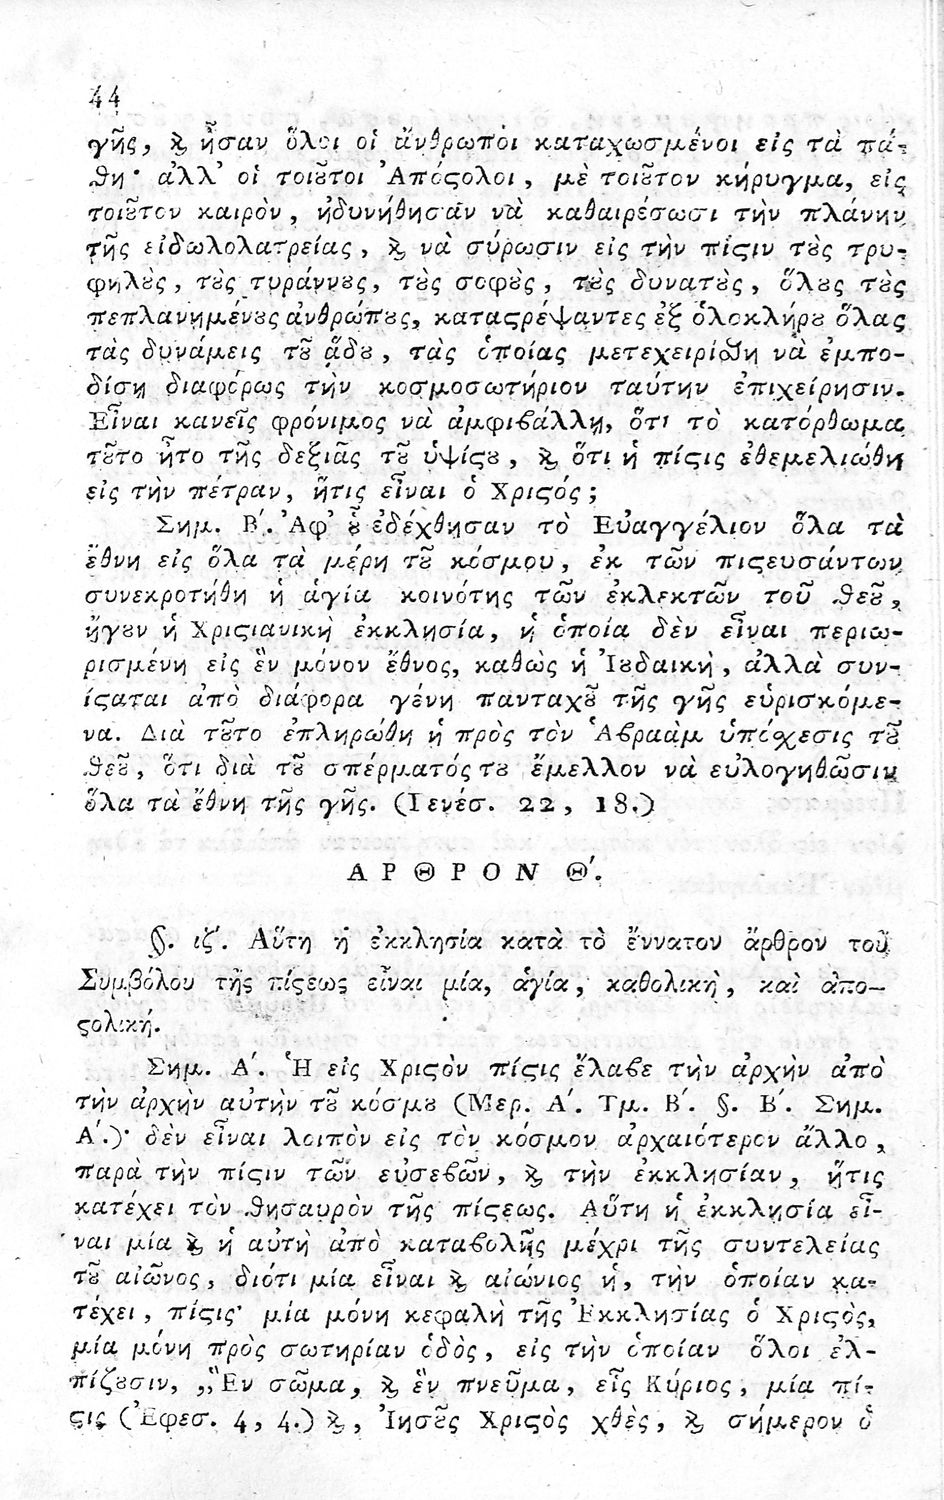 44
γῆς, ϗ ἦσαν ὅλοι οἱ ἄνθρωποι καταχωσμένοι εἰς τὰ πά-
ϑη· ἀλλ' οἱ τοιȣ͂τοι Ἀπόϛολοι, μὲ τοιȣ͂τον κήρυγμα, εἰς
τοιȣ͂τον καιρὸν, ἠδυνήθησαν νὰ καθαιρέσωσι τὴν πλάνην
τῆς εἰδωλολατρείας, ϗ νὰ σύρωσιν εἰς τὴν πίϛιν τȣ̀ς τρυ-
φηλȣ̀ς, τȣ̀ς τυράννȣς, τȣ̀ς σοφȣ̀ς, τȣ̀ς δυνατȣ̀ς, ὅλȣς τȣ̀ς
πεπλανημένȣς ἀνθρώπȣς, καταϛρέψαντες ἐξ ὁλοκλήρȣ ὅλας
τὰς δυνάμεις τȣ͂ ᾅδȣ, τὰς ὁποίας μετεχειρίσϑη νὰ ἐμπο-
δίσῃ διαφόρως τὴν κοσμοσωτήριον ταύτην ἐπιχείρησιν.
Εἶναι κανεῖς φρόνιμος νὰ ἀμφιβάλλῃ, ὅτι τὸ κατόρθωμα
τȣ͂το ἦτο τῆς δεξιᾶς τȣ͂ ὑψίϛȣ, ϗ ὅτι ἡ πίϛις ἐθεμελιώθη
εἰς τὴν πέτραν, ἥτις εἶναι ὁ Χριϛός;
Σημ. Β´. Ἀφ' ȣ̔͂ ἐδέχθησαν τὸ Εὐαγγέλιον ὅλα τὰ
ἔθνη εἰς ὅλα τὰ μέρη τȣ͂ κόσμου, ἐκ τῶν πιϛευσάντων
συνεκροτήθη ἡ ἁγία κοινότης τῶν ἐκλεκτῶν τοῦ ϑεȣ͂,
ἤγȣν ἡ Χριϛιανικὴ ἐκκλησία, ἡ ὁποία δὲν εἶναι περιω-
ρισμένη εἰς ἓν μόνον ἔθνος, καθὼς ἡ Ἰȣδαικὴ, ἀλλὰ συν-
ίϛαται ἀπὸ διάφορα γένη πανταχȣ͂ τῆς γῆς εὑρισκόμε-
να. Διὰ τȣ͂το ἐπληρώθη ἡ πρὸς τὸν Ἀβραὰμ ὑπόσχεσις τȣ͂
ϑεȣ͂, ὅτι διὰ τȣ͂ σπέρματός τȣ ἔμελλον νὰ εὐλογηθῶσιν
ὅλα τὰ ἔθνη τῆς γῆς. (Γενέσ. 22, 18.)
ΑΡΘΡΟΝ Θ´.
§. ιζ´. Αὕτη ἡ ἐκκλησία κατὰ τὸ ἔννατον ἄρθρον τοῦ
Συμβόλου τῆς πίϛεως εἶναι μία, ἁγία, καθολικὴ, καὶ ἀπο-
ϛολική.
Σημ. Α´. Ἡ εἰς Χριϛὸν πίϛις ἔλαβε τὴν ἀρχὴν ἀπὸ
τὴν ἀρχὴν αὐτὴν τȣ͂ κόσμȣ (Μερ. Α´. Τμ. Β´. §. Β´. Σημ.
Α´.)· δὲν εἶναι λοιπὸν εἰς τὸν κόσμον ἀρχαιότερον ἄλλο,
παρὰ τὴν πίϛιν τῶν εὐσεβῶν, ϗ τὴν ἐκκλησίαν, ἥτις
κατέχει τὸν ϑησαυρὸν τῆς πίϛεως. Αὕτη ἡ ἐκκλησία εἶ-
ναι μία ϗ ἡ αὐτὴ ἀπὸ καταβολῆς μέχρι τῆς συντελείας
τȣ͂ αἰῶνος, διότι μία εἶναι ϗ αἰώνιος ἡ, τὴν ὁποίαν κα-
τέχει, πίϛις· μία μόνη κεφαλὴ τῆς Ἐκκλησίας ὁ Χριϛὸς,
μία μόνη πρὸς σωτηρίαν ὁδὸς, εἰς τὴν ὁποίαν ὅλοι ἐλ-
πίζȣσιν, „Ἓν σῶμα, ϗ ἓν πνεῦμα, εἷς Κύριος, μία πί-
ϛις (Ἐφεσ. 4, 4.) ϗ, Ἰησȣ͂ς Χριϛὸς χθὲς, ϗ σήμερον ὁ